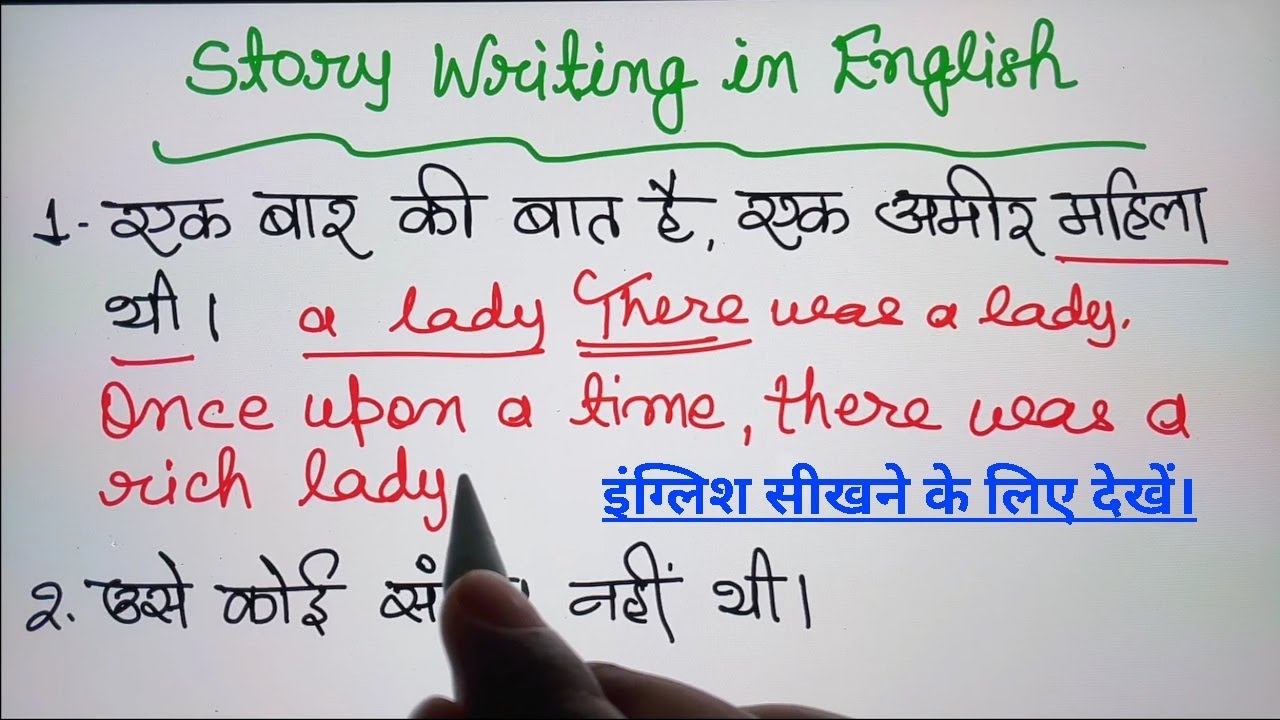 Story Writing in English
1- एक बार की बात है, एक अमीर महिला
थी। a lady There was a lady.
Once upon a time, there was a
rich lady
इंग्लिश सीखने के लिए देखें।
2. उसे कोई नहीं थी।